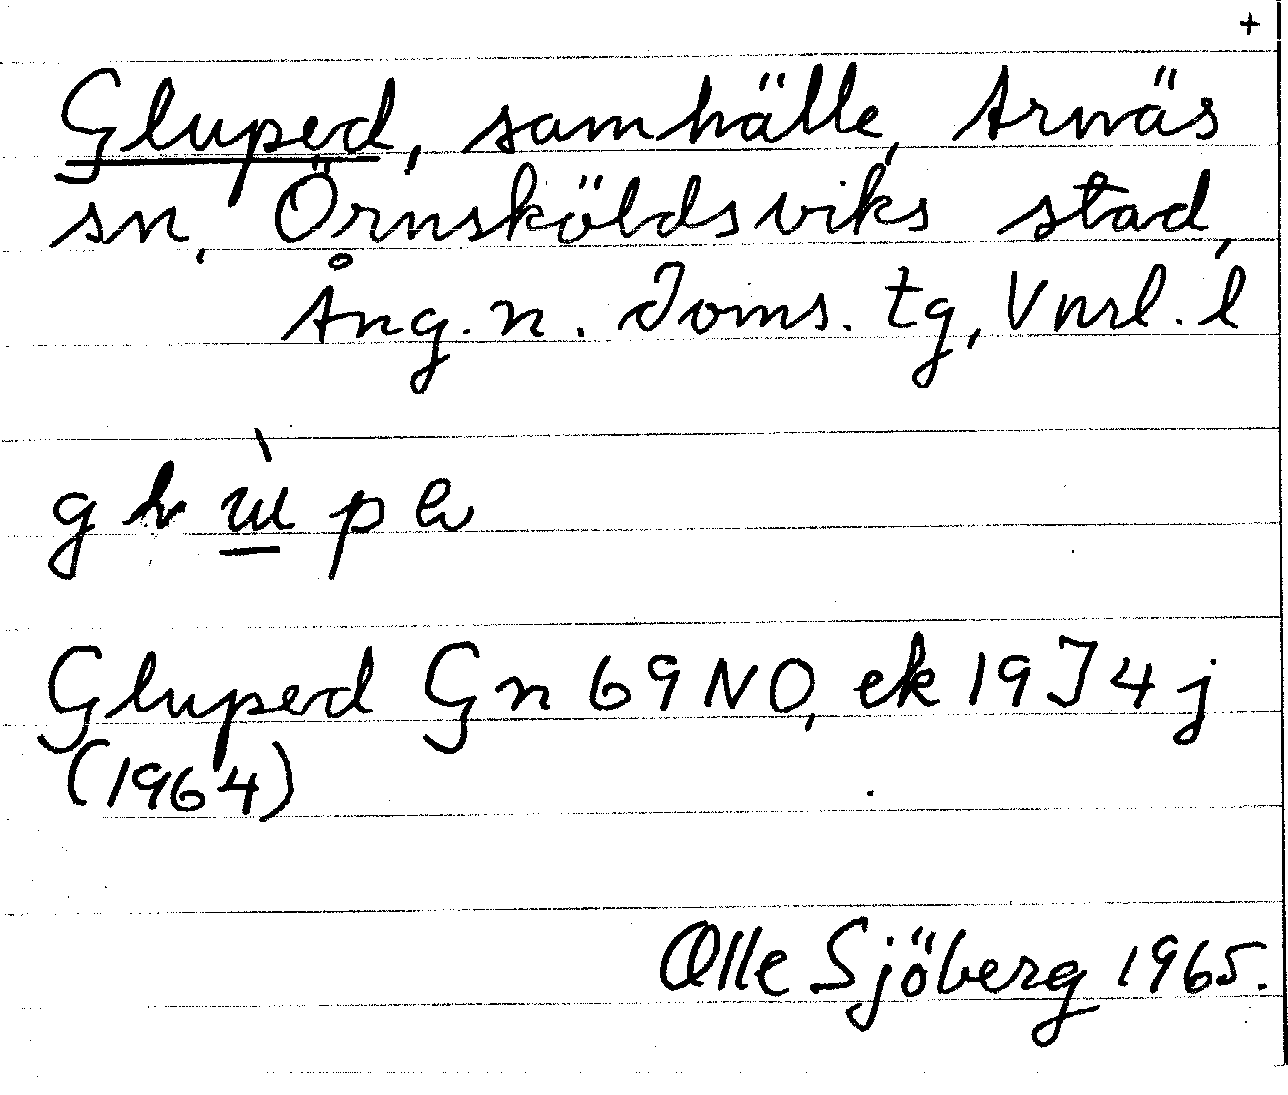 +
Gluped, samhälle, Arnäs
sn, Örnsköldsviks stad,
Ång. n. Doms. tg, Vnrl. l
Gluped Gn 69 NO, ek 19 J 4 j
(1964)
Olle Sjöberg 1965.